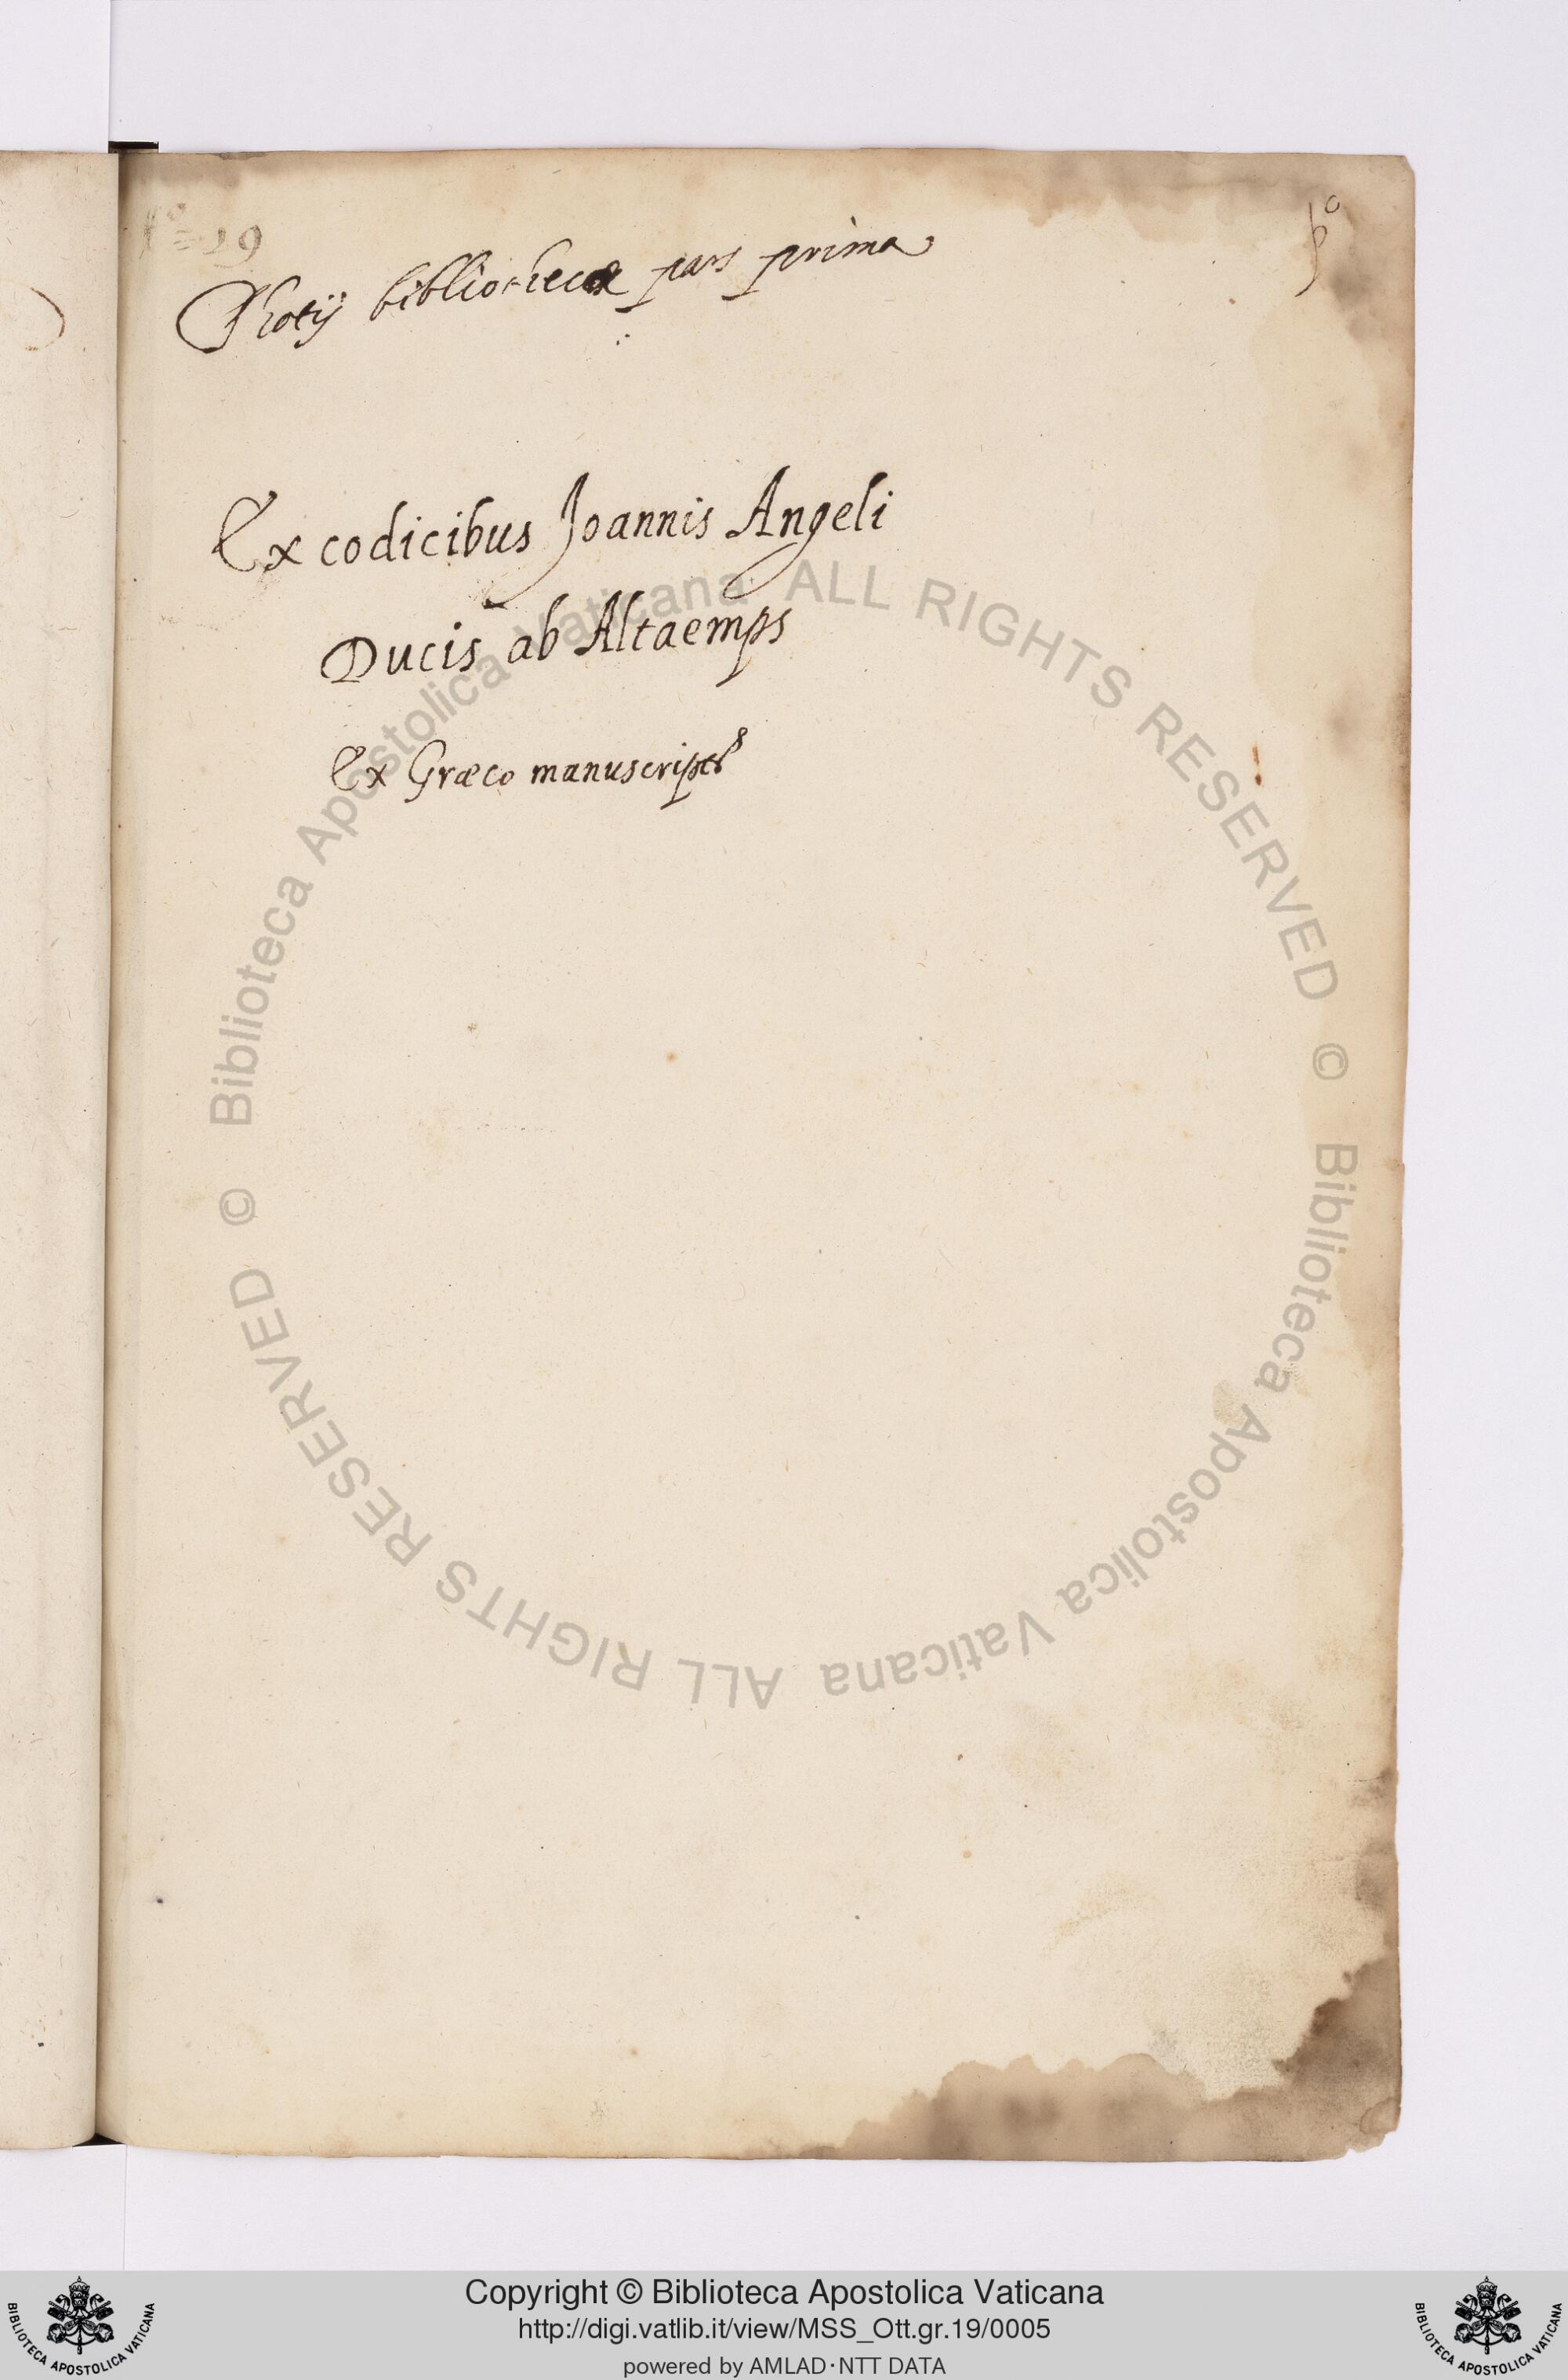 19
Photij bibliothecæ pars prima
pº
Ex codicibus Joannis Angeli
Ducis ab Altaemps
Ex Græco manuscript
© Biblioteca Apostolica Vaticana ALL RIGHTS RESERVED
© Biblioteca Apostolica Vaticana ALL RIGHTS RESERVED
Copyright © Biblioteca Apostolica Vaticana
http://digi.vatlib.it/view/MSS_Ott.gr.19/0005
powered by AMLAD·NTT DATA
BIBLIOTECA APOSTOLICA VATICANA
BIBLIOTECA APOSTOLICA VATICANA